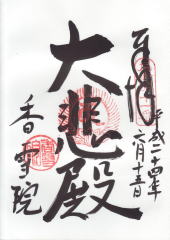 奉拝
平成二十四年
六月十五日
大悲殿
香雪院